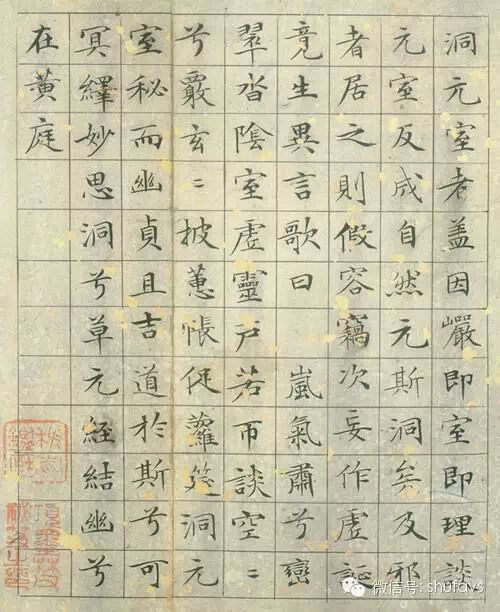 洞元室者盖因巖即室即理談
元室反成自然元斯洞矣及邪
者居之則假容竊次妄作虛誕
竞生異言歌曰 嵐氣肅兮巒
翠沓陰室虛靈户若帀談空〻
兮覈玄〻披蕙帳促蘿筵洞元
室秘而幽貞且吉道於斯兮可
冥繹妙思洞兮草元經結幽兮
在黄庭
微信号: shufavs